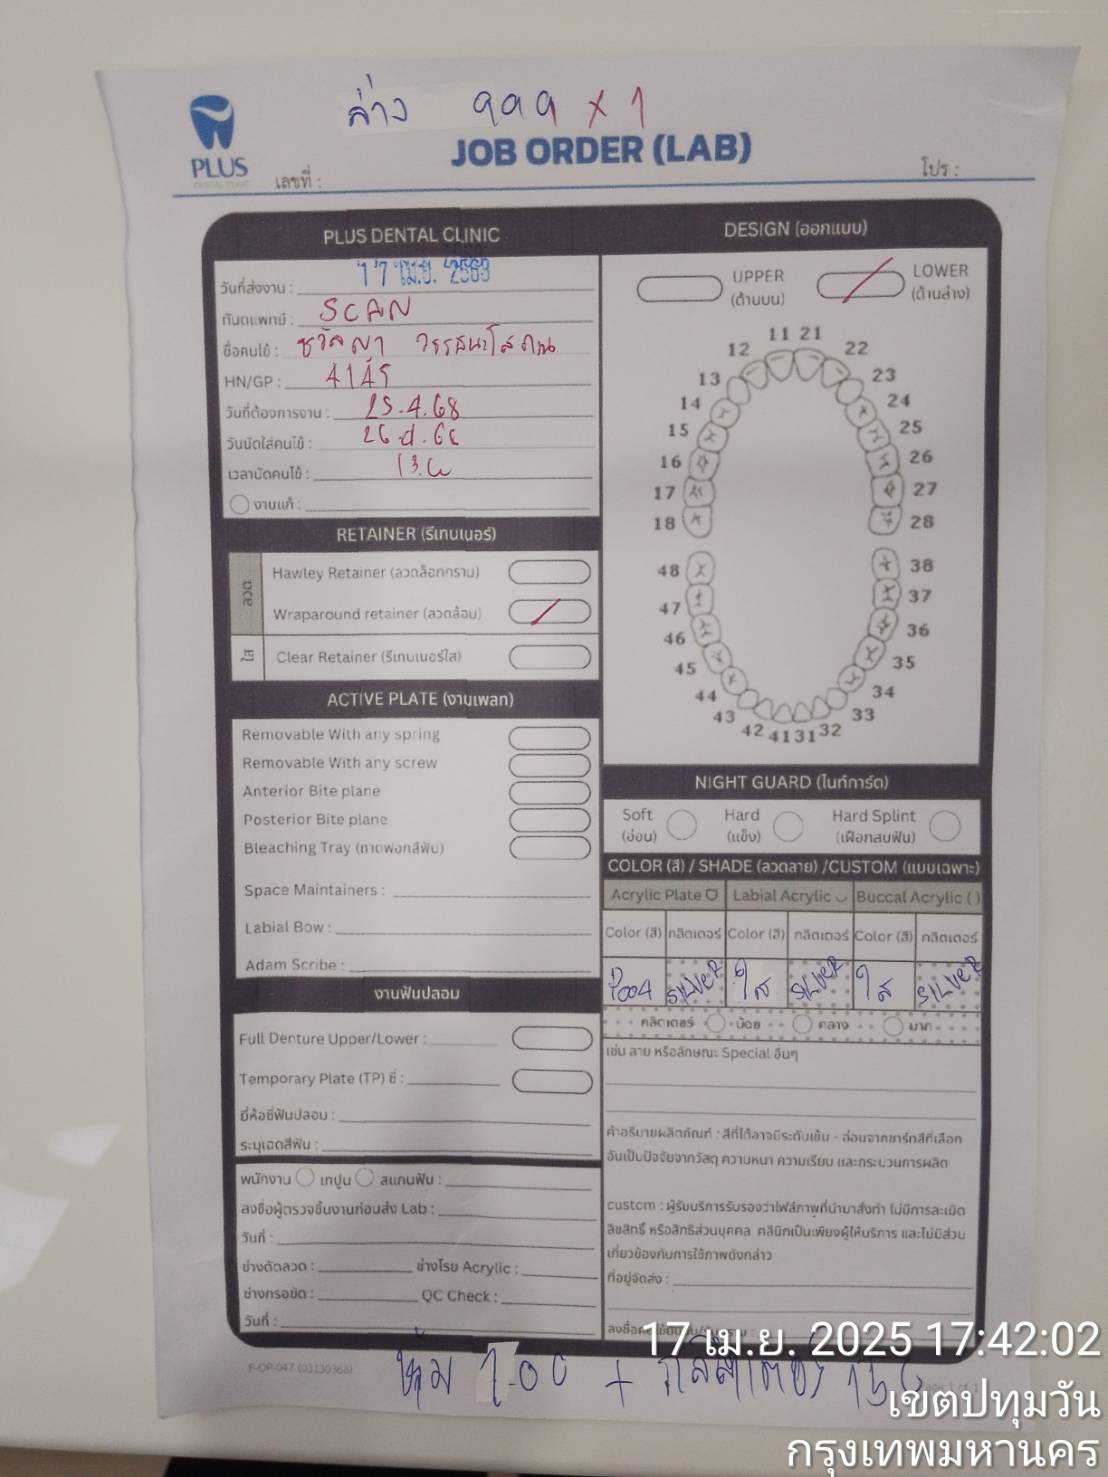 ล่าง ๑๑๑ x 1
PLUS
JOB ORDER (LAB)
เลขที่ :
โปร :
PLUS DENTAL CLINIC
วันที่ส่งงาน : 17 เม.ย.
ทันตแพทย์ : SCAN
ชื่อคนไข้ :
HN/GP : 4145
วันที่ต้องการงาน : 25.4.68
วันนัดใส่คนไข้ :
เวลานัดคนไข้ :
งานแก้ :
RETAINER (รีเทนเนอร์)
ลวด
Hawley Retainer (ลวดล็อกกราม)
Wraparound retainer (ลวดล้อม)
ใส
Clear Retainer (รีเทนเนอร์ใส)
ACTIVE PLATE (งานเพลท)
Removable With any spring
Removable With any screw
Anterior Bite plane
Posterior Bite plane
Bleaching Tray (ถาดฟอกสีฟัน)
Space Maintainers :
Labial Bow :
Adam Scribe :
งานฟันปลอม
Full Denture Upper/Lower :
Temporary Plate (TP) ซี่ :
ยี่ห้อซี่ฟันปลอม :
ระบุเฉดสีฟัน :
พนักงาน เทปูน สแกนฟัน :
ลงชื่อผู้ตรวจชิ้นงานก่อนส่ง Lab :
วันที่ :
ช่างดัดลวด : ช่างโรย Acrylic :
ช่างกรอขัด : QC Check :
วันที่ :
DESIGN (ออกแบบ)
UPPER
(ด้านบน)
LOWER
(ด้านล่าง)
11 21
12 22
13 23
14 24
15 25
16 26
17 27
18 28
48 38
47 37
46 36
45 35
44 34
43 33
42 41 31 32
NIGHT GUARD (ไนท์การ์ด)
Soft
(อ่อน)
Hard
(แข็ง)
Hard Splint
(เฝือกสบฟัน)
COLOR (สี) / SHADE (ลวดลาย) /CUSTOM (แบบเฉพาะ)
Acrylic Plate Labial Acrylic Buccal Acrylic ( )
Color (สี) กลิตเตอร์ Color (สี) กลิตเตอร์ Color (สี) กลิตเตอร์
P004 SILVER ใส SILVER ใส SILVER
กลิตเตอร์ น้อย กลาง มาก
เช่น ลาย หรือลักษณะ Special อื่นๆ
คำอธิบายผลิตภัณฑ์ : สีที่ได้อาจมีระดับเข้ม - อ่อนจากชาร์ทสีที่เลือก
อันเป็นปัจจัยจากวัสดุ ความหนา ความเรียบ และกระบวนการผลิต
custom : ผู้รับบริการรับรองว่าไฟล์ภาพที่นำมาสั่งทำ ไม่มีการละเมิด
ลิขสิทธิ์ หรือสิทธิส่วนบุคคล คลินิกเป็นเพียงผู้ให้บริการ และไม่มีส่วน
เกี่ยวข้องกับการใช้ภาพดังกล่าว
ที่อยู่จัดส่ง :
F-OP-047 (03130368)
17 เม.ย. 2025 17:42:02
เขตปทุมวัน
กรุงเทพมหานคร